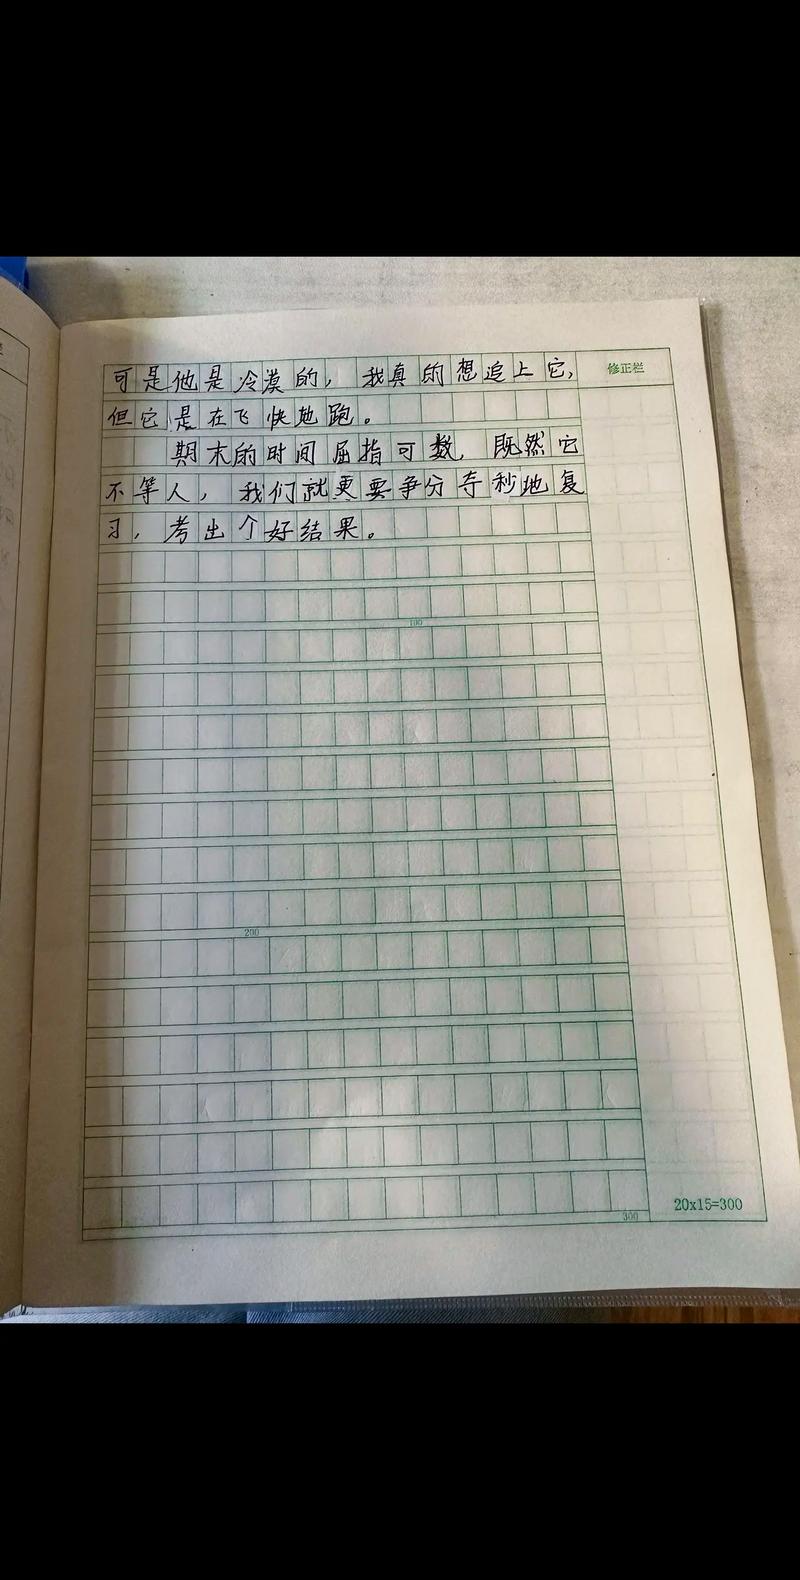 可是他是冷漠的，我真的想追上它，
修正栏
但它是在飞快地跑。
期末的时间屈指可数，既然它
不等人，我们就更要争分夺秒地复
习，考出个好结果。
100
200
300
20x15=300